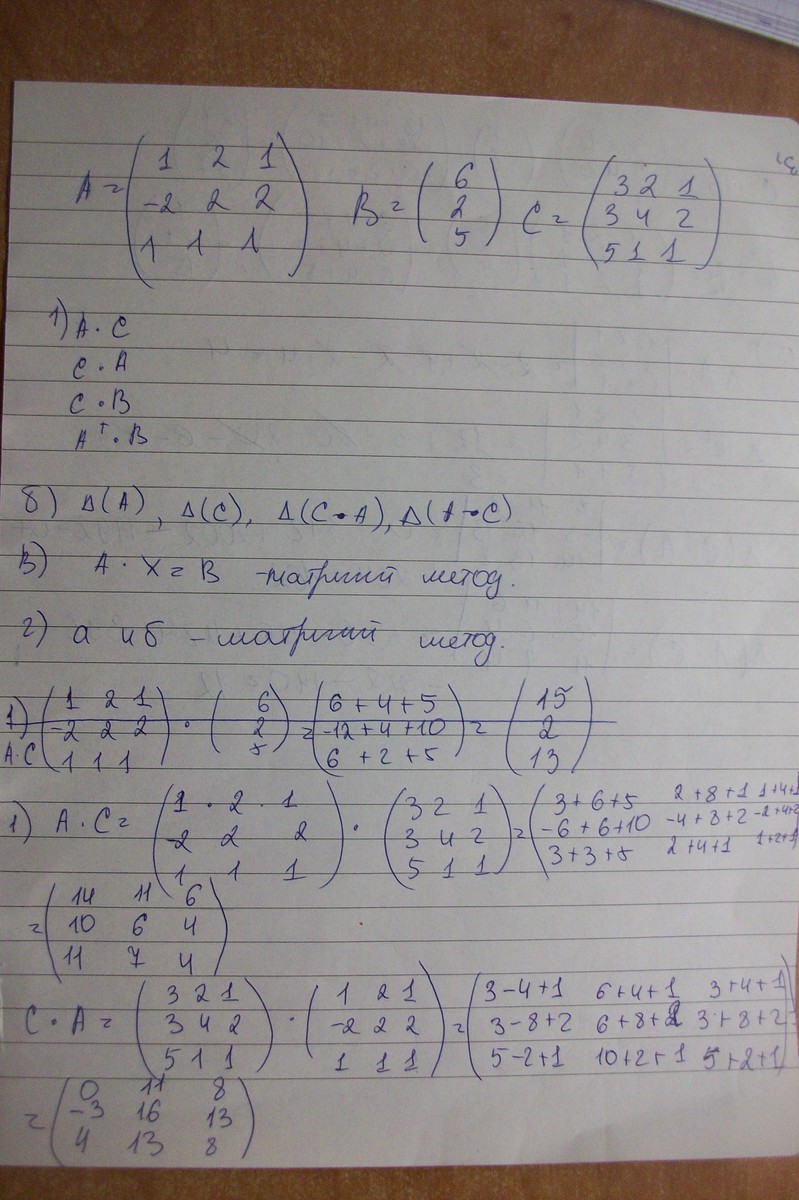 A = ( 1 2 1 ; -2 2 2 ; 1 1 1 ) B = ( 6 ; 2 ; 5 ) C = ( 3 2 1 ; 3 4 2 ; 5 1 1 )
1) A · C
C · A
C · B
Aᵀ · B
б) Δ(A), Δ(C), Δ(C·A), Δ(A·C)
в) A · X = B - матричий метод.
г) а и б - матричий метод.
1) A·C ( 1 2 1 ; -2 2 2 ; 1 1 1 ) · ( 6 ; 2 ; 5 ) = ( 6+4+5 ; -12+4+10 ; 6+2+5 ) = ( 15 ; 2 ; 13 )
1) A·C = ( 1 · 2 · 1 ; -2 2 2 ; 1 1 1 ) · ( 3 2 1 ; 3 4 2 ; 5 1 1 ) = ( 3+6+5 2+8+1 1+4+1 ; -6+6+10 -4+8+2 -2+4+2 ; 3+3+5 2+4+1 1+2+1 )
= ( 14 11 6 ; 10 6 4 ; 11 7 4 )
C · A = ( 3 2 1 ; 3 4 2 ; 5 1 1 ) · ( 1 2 1 ; -2 2 2 ; 1 1 1 ) = ( 3-4+1 6+4+1 3+4+1 ; 3-8+2 6+8+2 3+8+2 ; 5-2+1 10+2+1 5+2+1 ) =
= ( 0 11 8 ; -3 16 13 ; 4 13 8 )